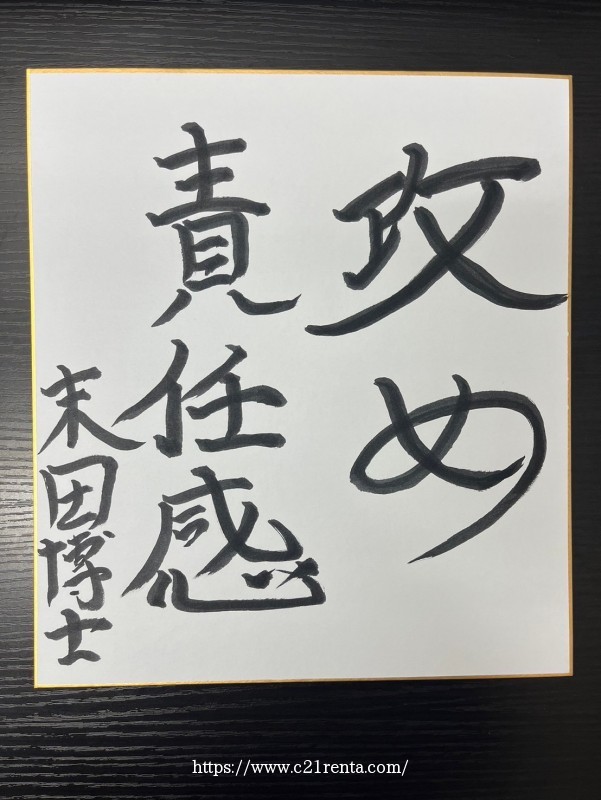 攻め
責任感
末田博士
https://www.c21renta.com/